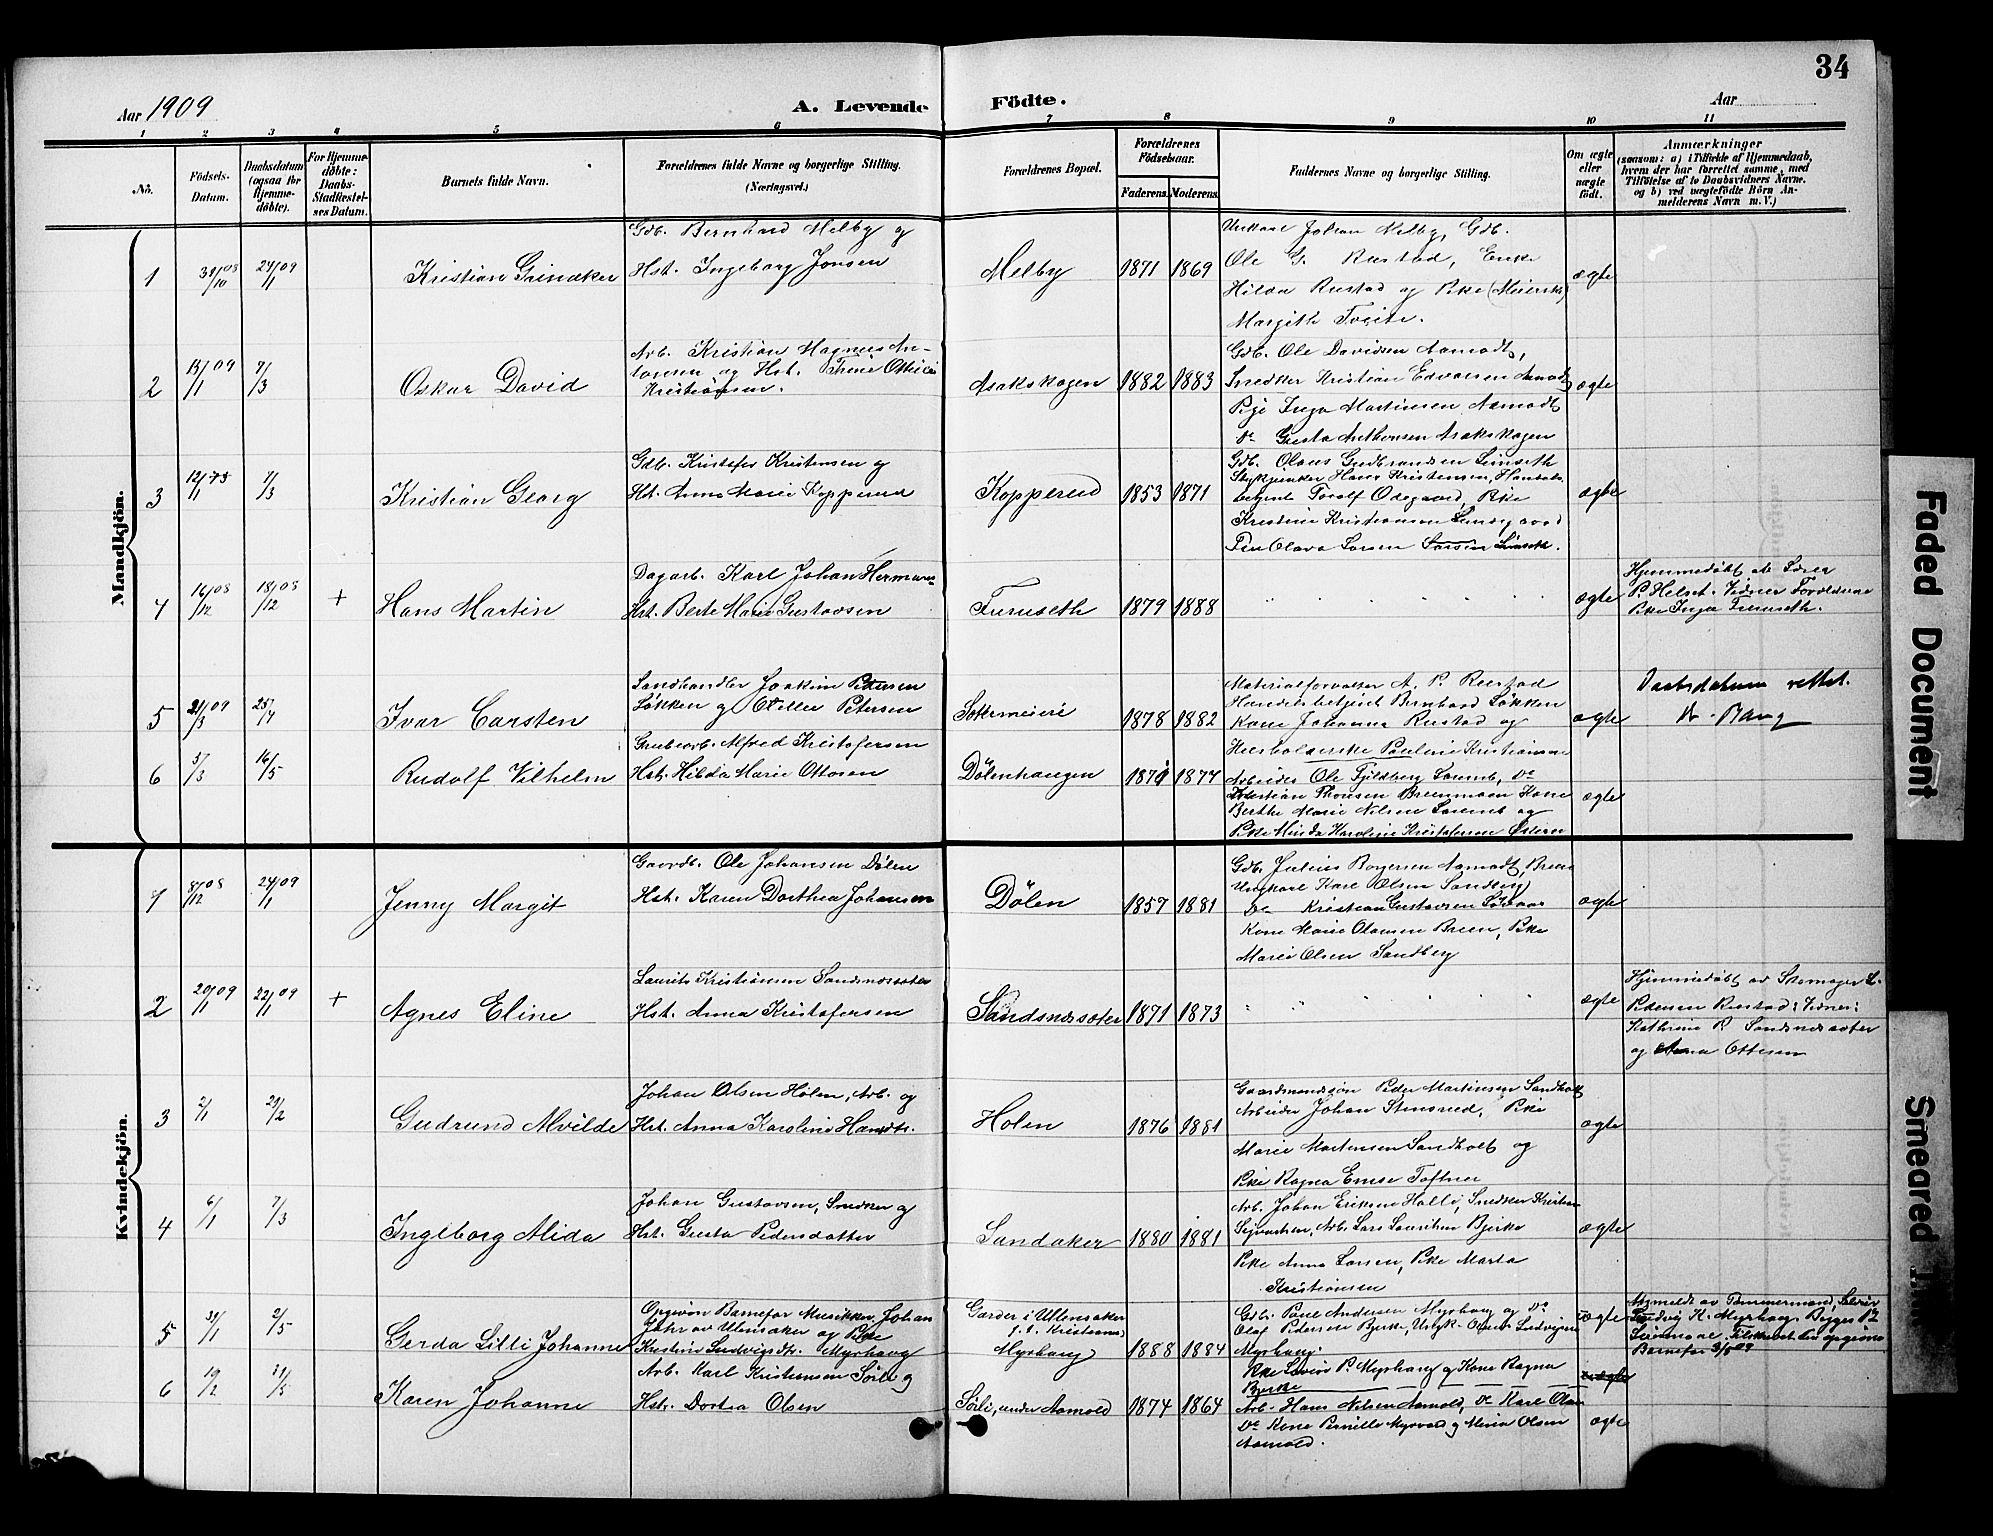 34
Aar 1909
A. Levende Födte.
Aar
1 2 3 4 5 6 7 8 9 10 11
No.
Födsels-Datum.
Daabsdatum (ogsaa for Hjemme-döbte).
For Hjemme-döbte: Daabs-Stadfæstel-ses Datum.
Barnets fulde Navn.
Forældrenes fulde Navne og borgerlige Stilling. (Næringsvei.)
Forældrenes Bopæl.
Forældrenes Födselsaar.
Faderens. Moderens.
Faddernes Navne og borgerlige Stilling.
Om ægte eller uægte födt.
Anmærkninger
(saasom: a) i Tilfælde af Hjemmedaab,
hvem der har forrettet samme, med
Tilföielse af to Daabsvidners Navne.
og b) ved uægtefödte Börn An-
melderens Navn m. V.)
Mandkjön.
1 31/10 08 24/1 09 Kristian Grinaker
Gdb. Bernhard Melby og
Hst. Ingeborg Jonsen
Melby 1871 1869
Unkarl Johan Melby, Gdb.
Ole G. Rustad, Enke
Hilda Rustad og Pike (Meierske)
Margith Tveite.
ægte
2 13/1 09 7/3 Oskar David
Arb. Kristian Magnus An-
tonsen og Hst. Thrine
Kristiansen.
Asakskogen 1882 1883
Gdb. Ole Davidsen Aamodt,
Snedker Kristian Edvardsen Aamodt
Pige Inga Martinsen Aamodt
Do Gusta Anthonsen Asakskogen
ægte
3 12/1 7/3 Kristian Georg
Gdb. Kristofer Kristensen og
Hst. Anna Marie Kopperud
Kopperud 1853 1871
Gdb. Olaus Gudbrandsen Limseth
Hans Kristensen, Handels-
betjent Toralf Ødegaard, Pike
Kristine Kristiansen
Olava Larsen Limseth.
ægte
4 16/12 08 18/12 08 + Hans Martin
Dagarb. Karl Johan Hermans
Hst. Berte Marie Gustavsen
Furuseth 1879 1888
" " " " " "
ægte
Hjemmedøbt af Lærer
P. Helset. Vidner Forældrene
Pike Inga Furuseth.
5 21/3 09 25/4 Ivar Carsten
Landhandler Joakim Petersen
Løkken og Petersen
Sottermeieri 1878 1882
Materialforvalter A. P. Rustad
Handelsbetjent Bernhard Løkken
Kone Johanna Rustad og
Husholderske Pauline Kristiansen
ægte
Daabsdatum rettet.
Bang
6 5/3 16/5 Rudolf Vilhelm
Grubearb. Alfred Kristofersen
Hst. Hilda Marie Ottosen
Dølenhaugen 1871 1877
Arbeider Ole Fjeldberg Do
Kristian Thoresen Kone
Berthe Marie Nilsen og
Pike Minda Karoline Kristofersen
ægte
Kvindekjön.
1 8/12 08 24/1 09 Jenny Margit
Gaardb. Ole Johansen Dølen
Hst. Karen Dorthea Johansen
Dölen 1857 1881
Gdb. Julius Borgersen Aamodt,
Ungkarl Karl Olsen Sandberg
Do Kristian Gustavsen
Kone Marie Olausen Breen, Pike
Marie Olsen Sandberg
ægte
2 20/1 09 22/1 09 + Agnes Eline
Laurits Kristiansen Sandsnæsseter
Hst. Anna Kristofersen
Sandsnæsseter 1871 1873
" " " " " "
ægte
Hjemmedøbt av Skomager L.
Pedersen Rustad: Vidner:
Kathrine P. Sandsnæsseter
og Anna Ottesen
3 2/1 21/2 Gudrund Alvilde
Johan Olsen Holen, Arb. og
Hst. Anna Karoline Hansdtr.
Holen 1876 1881
Gaardmandssøn Peder Martinsen Sandholt
Arbeider Johan Stensrud, Pike
Marie Martinsen Sandholt og
Pike Ragna Toftner
ægte
4 6/1 7/3 Ingeborg Alida
Johan Gustavsen, Snedker og
Hst. Gusta Pedersdatter
Sandaker 1880 1881
Arb. Johan Eriksen Halli, Snedker Kristian
Sejvertsen, Arb. Lars Lauritsen Bjerke
Pike Anna Larsen, Pike Marta
Kristiansen
ægte
5 31/1 2/5 Gerda Lilli Johanne
Opgiven Barnefar Musikker Johan
av Ulensaker og Pike
Kristine Ludvigsdtr. Myrhaug
Garder i Ullensaker
f. t. Kristiania
Myrhaug 1888 1884
Gdb. Paul Andersen Myrhaug og Do
Olaf Pedersen Bjerke, Ungk. Olaus Ludvigsen
Myrhaug.
Pike Lovise P. Myrhaug og Kone Ragna
Bjerke
uægte
Anmeldt av Tømmermand,
Ludvig K. Myrhaug.
Barnefar 3/5 09
6 10/2 31/5 Karen Johanne
Arb. Karl Kristiansen Sörli og
Hstr. Dortea Olsen
Sörli, under Aamold 1874 1864
Arb. Hans Nilsen Aamold, Do Karl Olsen
Do Kone Pernille Myrvold og Maria Olsen
Aamold.
ægte
Faded Document
Smeared